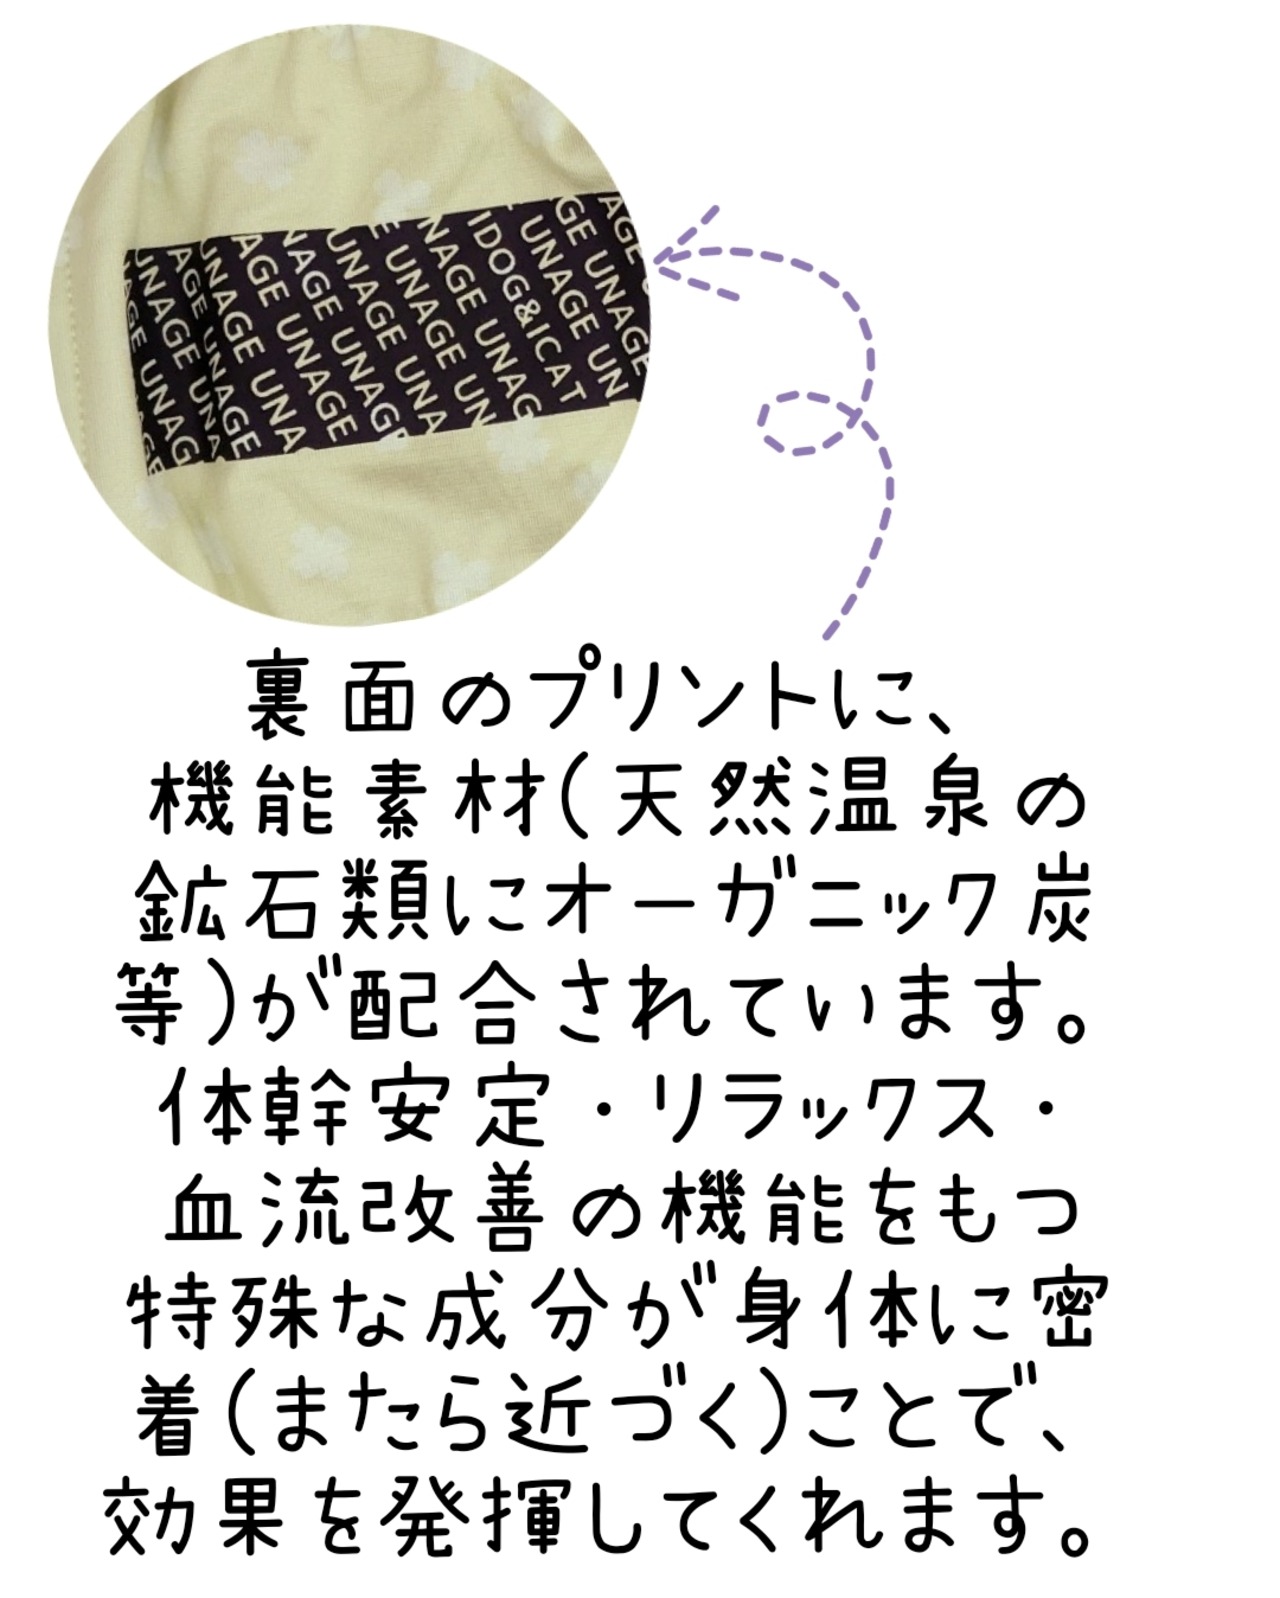 UNAGE UNAGE UNAGE
IDOG&ICAT
裏面のプリントに、
機能素材(天然温泉の
鉱石類にオーガニック炭
等)が配合されています。
体幹安定・リラックス・
血流改善の機能をもつ
特殊な成分が身体に密
着(またら近づく)ことで、
効果を発揮してくれます。